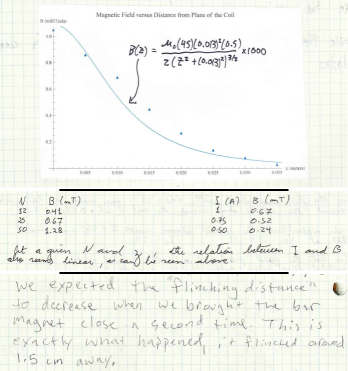 Magnetic Field versus Distance from Plane of the Coil
B (milliTesla)
1.0
0.8
0.6
0.4
0.2
B(z) = μ₀(45)(0.013)²(0.5) x1000
2(z² + (0.013)²)^3/2
0.005 0.010 0.015 0.020 0.025 0.030 0.035
z (meters)
N B (mT) I (A) B (mT)
12 0.41 1 0.67
25 0.67 0.75 0.52
50 1.28 0.50 0.24
for a given N and z, the relation between I and B
also seems linear, as can be seen above.
We expected the "flinching distance"
to decrease when we brought the bar
magnet close a second time. This is
exactly what happened, it flinched around
1.5 cm away.